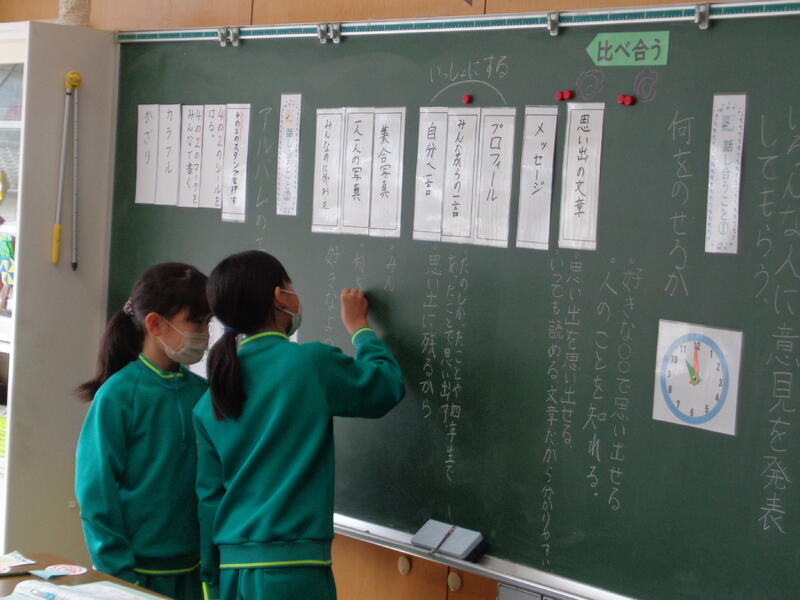 比べ合う
いろんな人に意見を発表
してもらう。
話し合うこと①
何をのせるか
思い出の文章
・好きな〇〇で思い出せる
・人のことを知れる。
・思い出を思い出せる。
いても読める文章だから分かりやすい
メッセージ
いっしょにする
プロフィール
みんなからの一言
自分へ一言
たのしかったことや四年生で
あったことで思い出す
思い出に残るから
集合写真
一人一人の写真
みんなのにがおえ
みん
好きなよう
話し合うこと②
アルバムの
4の2のスタンプを押す
4の2のシールを
はる。
4の2のマークを
みんなで書く。
カラフル
かざり
12
1
2
3
4
5
6
7
8
9
10
11